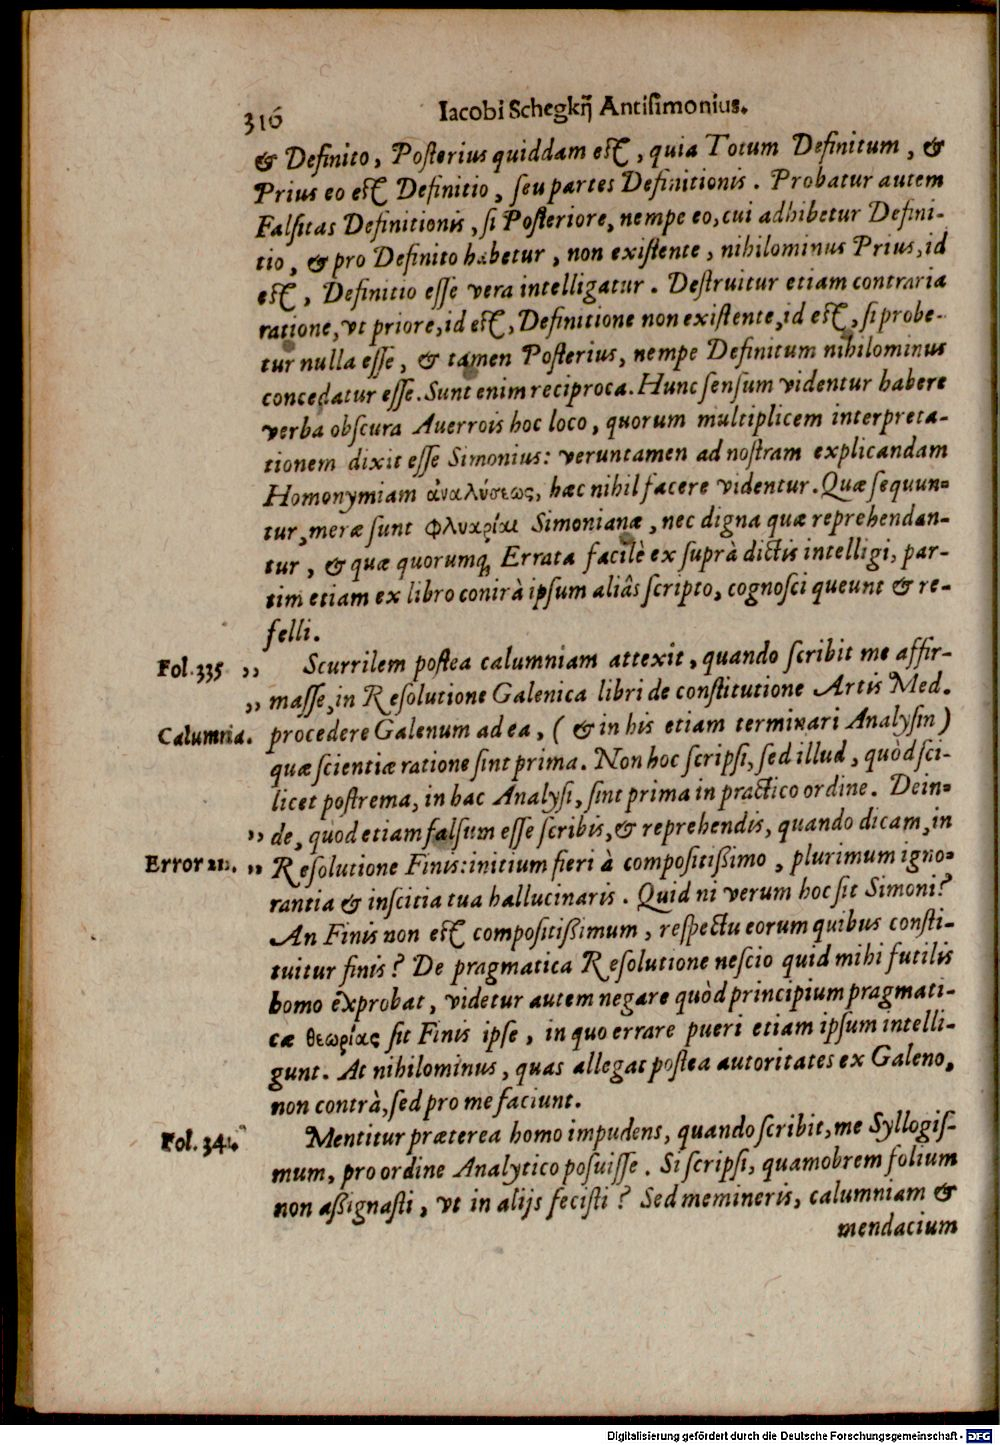 316
Iacobi Schegkij Antisimonius.
& Definito, Posterius quiddam est, quia Totum Definitum, &
Prius eo est Definitio, seu partes Definitionis. Probatur autem
Falsitas Definitionis, si Posteriore, nempe eo, cui adhibetur Defini-
tio, & pro Definito habetur, non existente, nihilominus Prius, id
est, Definitio esse vera intelligatur. Destruitur etiam contraria
ratione, vt priore, id est, Definitione non existente, id est, si probe-
tur nulla esse, & tamen Posterius, nempe Definitum nihilominus
concedatur esse. Sunt enim reciproca. Hunc sensum videntur habere
verba obscura Auerrois hoc loco, quorum multiplicem interpreta-
tionem dixit esse Simonius: veruntamen ad nostram explicandam
Homonymiam ἀναλύσεως, hæc nihil facere videntur. Quæ sequun-
tur, meræ sunt φλυαρίαι Simonianæ, nec digna quæ reprehendan-
tur, & quæ quorumq; Errata facilè ex suprà dictis intelligi, par-
tim etiam ex libro contrà ipsum aliâs scripto, cognosci queunt & re-
felli.
Fol. 335 ,, Scurrilem postea calumniam attexit, quando scribit me affir-
,, masse, in Resolutione Galenica libri de constitutione Artis Med.
Calumnia. procedere Galenum ad ea, (& in his etiam terminari Analysin)
quæ scientiæ ratione sint prima. Non hoc scripsi, sed illud, quòd sci-
licet postrema, in hac Analysi, sint prima in practico ordine. Dein-
,, de, quod etiam falsum esse scribis, & reprehendis, quando dicam, in
Error 211. ,, Resolutione Finis: initium fieri à compositißimo, plurimum igno-
rantia & inscitia tua hallucinaris. Quid ni verum hoc sit Simoni?
An Finis non est compositißimum, respectu eorum quibus consti-
tuitur finis? De pragmatica Resolutione nescio quid mihi futilis
homo exprobat, videtur autem negare quòd principium pragmati-
cæ θεωρίας sit Finis ipse, in quo errare pueri etiam ipsum intelli-
gunt. At nihilominus, quas allegat postea autoritates ex Galeno,
non contrà, sed pro me faciunt.
Fol. 341. Mentitur præterea homo impudens, quando scribit, me Syllogis-
mum, pro ordine Analytico posuisse. Si scripsi, quamobrem folium
non aßignasti, vt in alijs fecisti? Sed memineris, calumniam &
mendacium
Digitalisierung gefördert durch die Deutsche Forschungsgemeinschaft - DFG